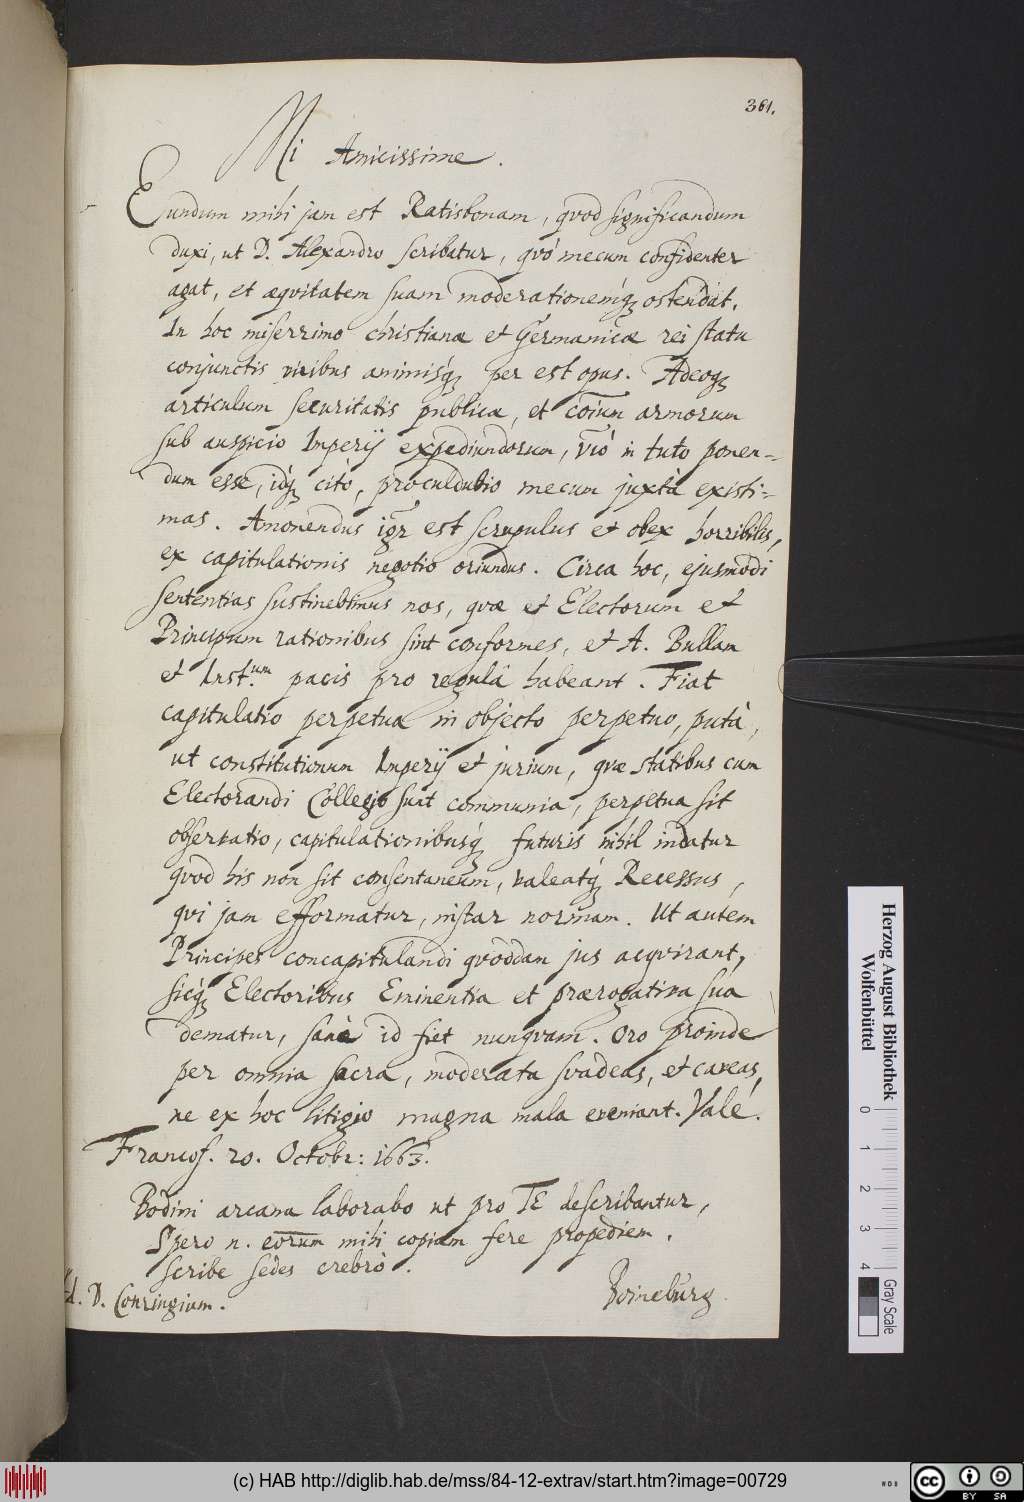 361.
Mi Amicissime.
Eundum mihi jam est Ratisbonam, qvod significandum
duxi, ut D. Alexandro scribatur, qvò mecum confidenter
agat, et æqvitatem suam moderationemq́ꝫ ostendat.
In hoc miserrimo christianæ et Germanicæ rei statu
conjunctis viribus animisq́ꝫ per est opus. Adeoqꝫ
articulum securitatis publicæ, et coīum armorum
sub auspicio Imperij expediundorum, in tuto ponen-
dum esse, idq́ꝫ citò, proculdubio mecum juxtà existi-
mas. Amonendus igr̄ est scrupulus et obex horribilis,
ex capitulationis negotio oriundus. Circa hoc, ejusmodi
sententias sustinebimus nos, qvæ et Electorum et
Principum rationibus sint conformes, et A. Bullam
et Inst.um pacis pro regulâ habeant. Fiat
capitulatio perpetua in objecto perpetuo, putà,
ut constitutionum Imperij et jurium, qvæ statibus cum
Electorandi Collegio sunt communia, perpetua sit
observatio, capitulationibusq́ꝫ futuris nihil indatur
qvod his non sit consentaneum, valeatq́ꝫ Recessus,
qvi jam efformatur, instar normam. Ut autem
Principes concapitulandi qvoddam jus acqvirant,
sicq́ꝫ Electoribus Eminentia et prærogativa sua
dematur, sanè id fiet nunqvam. Oro proinde
per omnia sacra, moderata svadeas, et caveas,
ne ex hoc litigio magna mala eveniant. Valé.
Francof. 20. Octobr: 1663.
Bodini arcana laborabo ut pro TE describantur,
Spero n. eorum mihi copiam fere propediem.
scribe sedes crebrò.
Ad. D. Conringium.
Boineburg
Herzog August Bibliothek
Wolfenbüttel
0 1 2 3 4
Gray Scale
(c) HAB http://diglib.hab.de/mss/84-12-extrav/start.htm?image=00729
cc BY SA